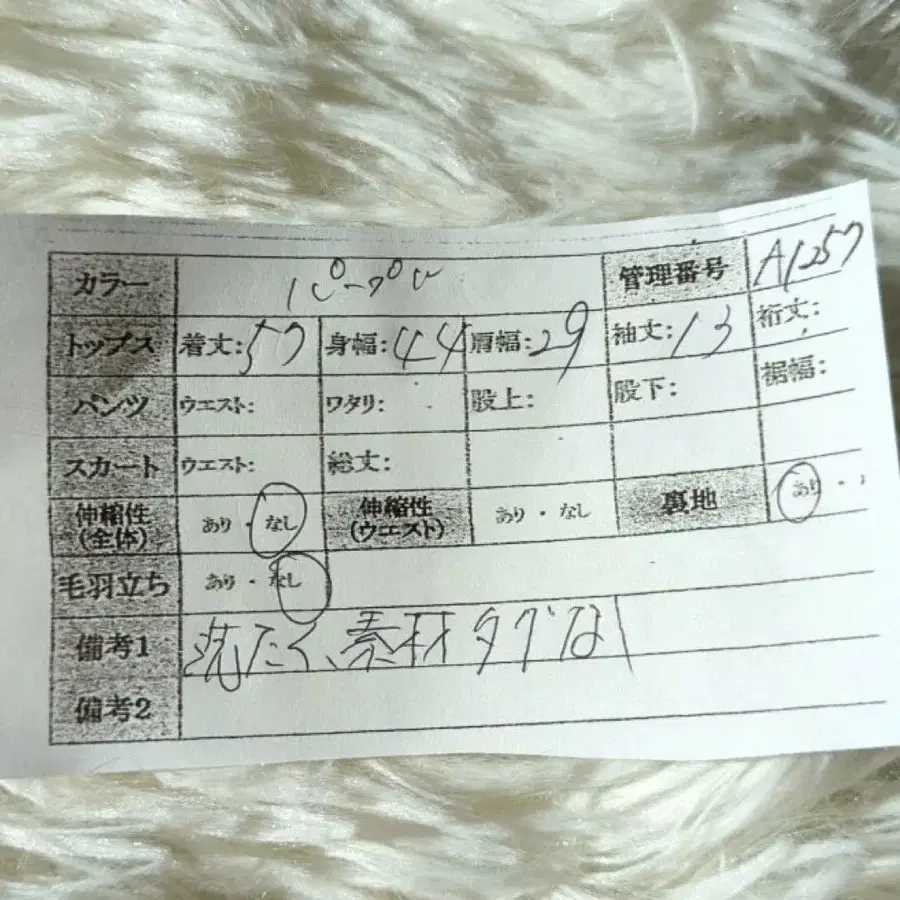 カラー パープル 管理番号 A1257
トップス 着丈:57 身幅:44 肩幅:29 袖丈:13 裄丈:
パンツ ウエスト: ワタリ: 股上: 股下: 裾幅:
スカート ウエスト: 総丈:
伸縮性(全体) あり・なし 伸縮性(ウエスト) あり・なし 裏地 あり・
毛羽立ち あり・なし
備考1 洗たく、素材タグなし
備考2